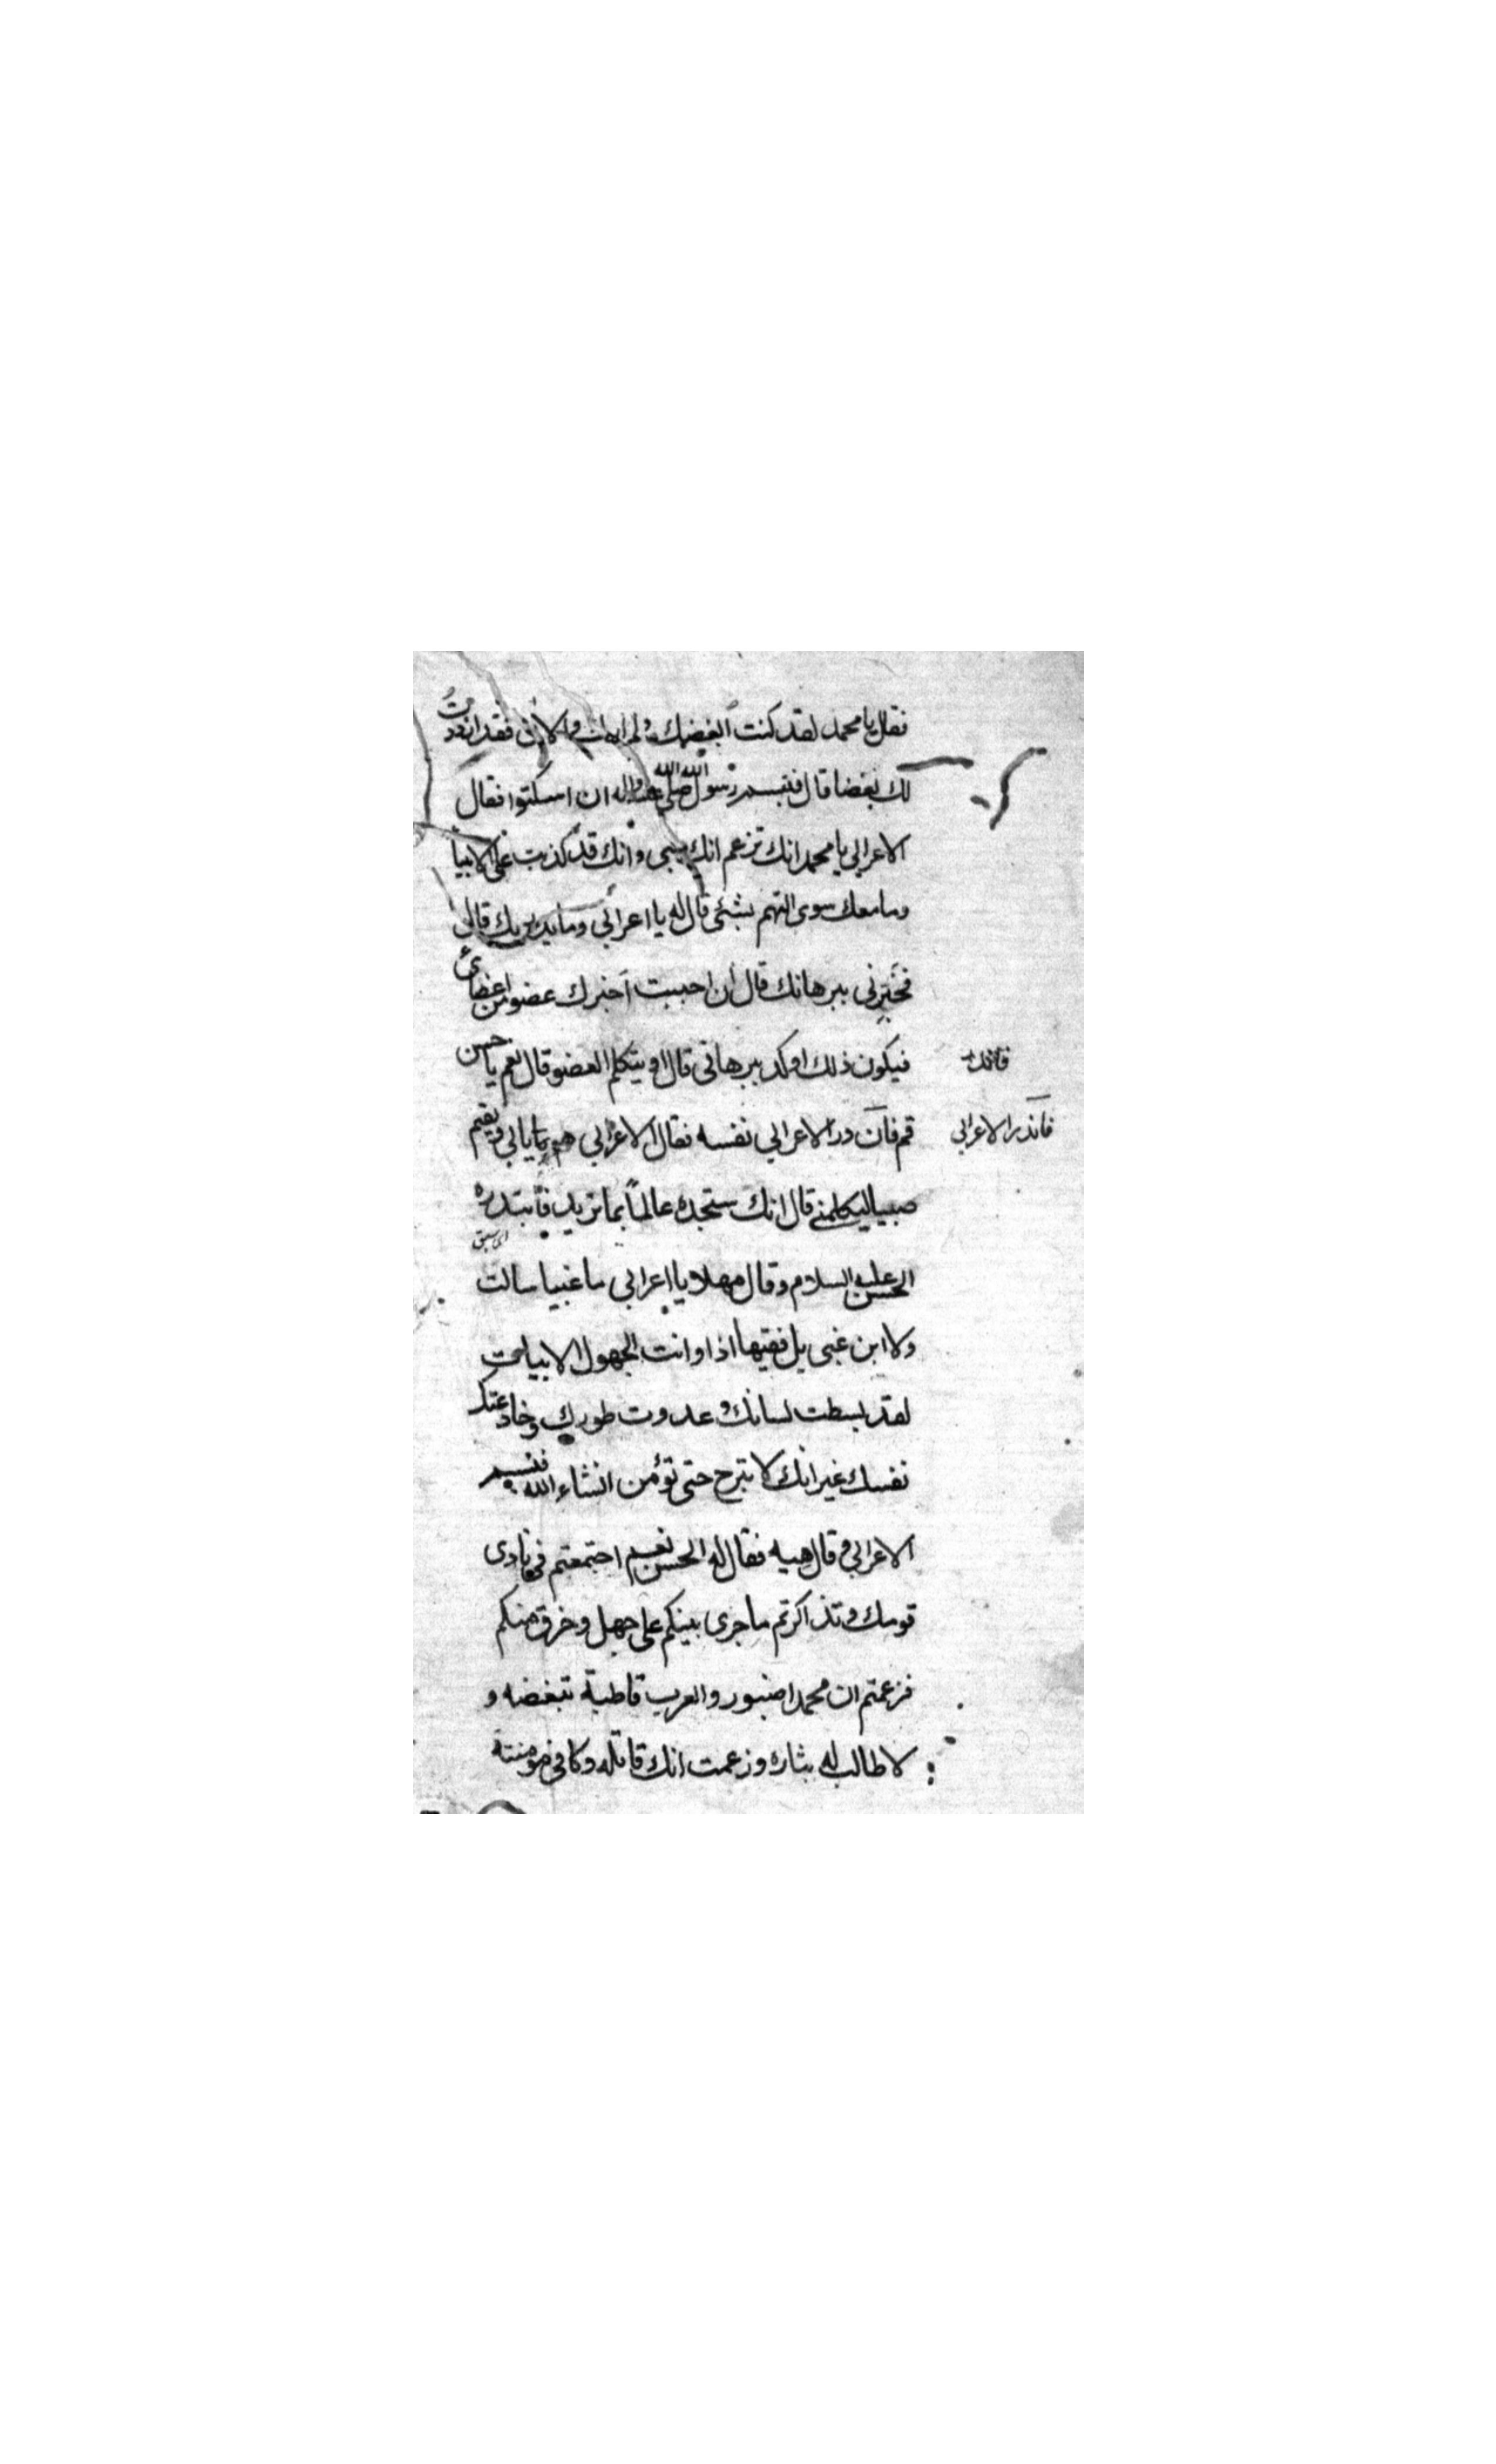 فقال يا محمد لقد كنت ابغضك ولم ارك والان فقد ازددت
لك بغضا قال فتبسم رسول الله صلى الله عليه واله ان اسكتوا فقال
الاعرابي يا محمد انك تزعم انك نبي وانك قد كذبت على الانبيا
وما معك سوى التهم بشئ قال له يا اعرابي وما يدريك قال
فخبرني ببرهانك قال ان احببت اخبرك عضو من اعضائ
فيكون ذلك اوكد ببرهاني قال او يتكلم العضو قال نعم يا حسن
قم فآن در الاعرابي نفسه فقال الاعرابي هو ما ياتي ويقيم
صبيا ليكلمني قال انك ستجده عالماً بما تريد فابتدره
اى سبق
الحسن عليه السلام وقال مهلا يا اعرابي ما غبيا سالت
ولا ابن غبى بل فقيها اذا وانت الجهول
لقد بسطت لسانك وعدوت طورك وخادعتك
نفسك غير انك لا تبرح حتى تؤمن انشاء الله فتبسم
الاعرابي وقال هيه فقال له الحسن نعم اجتمعتم في نادى
قومك وتذاكرتم ما جرى بينكم على جهل وخرق منكم
فزعمتم ان محمدا صنبور والعرب قاطبة تبغضه و
لا طالب له بثاره وزعمت انك قاتله وكافى مؤمنته
فاندر الاعرابي